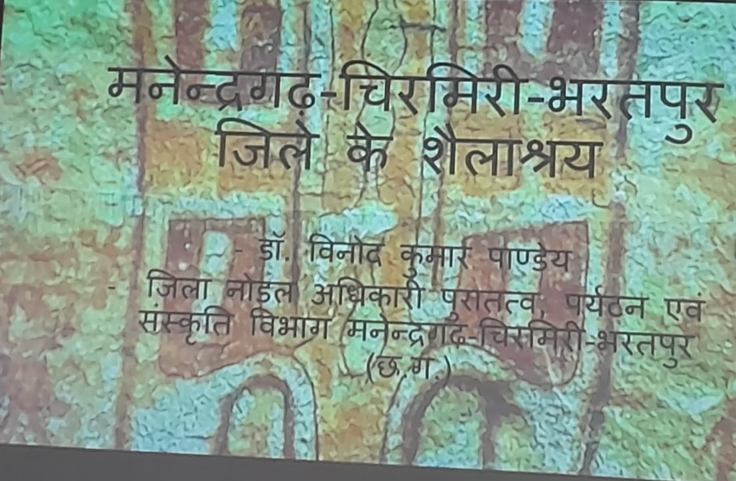 मनेन्द्रगढ़-चिरमिरी-भरतपुर
जिले के शैलाश्रय
- डॉ. विनोद कुमार पाण्डेय
- जिला नोडल अधिकारी पुरातत्व, पर्यटन एवं
संस्कृति विभाग मनेन्द्रगढ़-चिरमिरी-भरतपुर
(छ.ग.)